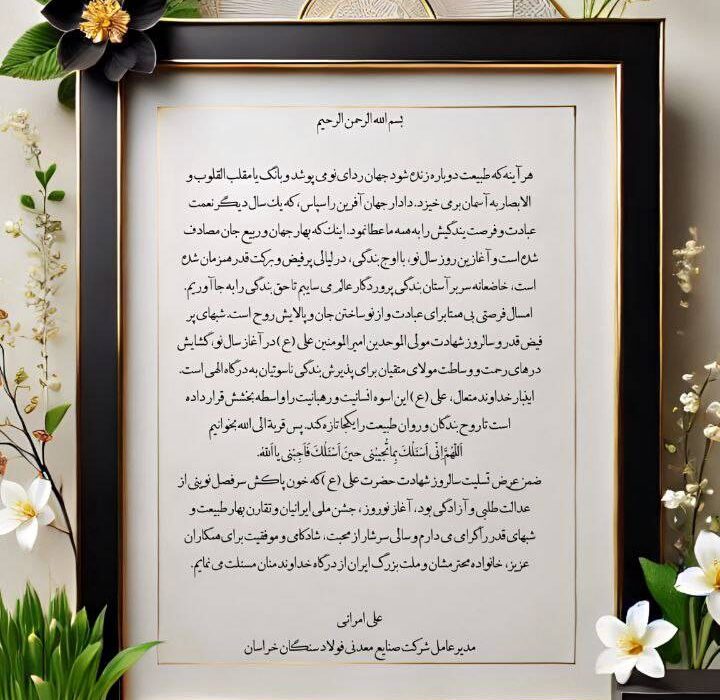 بسم الله الرحمن الرحیم
هر آینه که طبیعت دوباره زنده شود جهان ردای نو می پوشد و بانگ یا مقلب القلوب و
الابصار به آسمان بر می خیزد. دادار جهان آفرین را سپاس، که یک سال دیگر نعمت
عبادت و فرصت بندگیش را به همه ما عطا نمود. اینک که بهار جهان و ربیع جان مصادف
شده است و آغازین روز سال نو، با اوج بندگی، در لیالی پر فیض و برکت قدر همزمان شده
است، خاضعانه سر بر آستان بندگی پروردگار عالم می ساییم تا حق بندگی را به جا آوریم.
امسال فرصتی بی همتا برای عبادت و از نو ساختن جان و پالایش روح است. شبهای پر
فیض قدر و سالروز شهادت مولی الموحدین امیر المومنین علی (ع) در آغاز سال نو، گشایش
درهای رحمت و وساطت مولای متقیان برای پذیرش بندگی ناسوتیان به درگاه الهی است.
اینبار خداوند متعال، علی (ع) این اسوه انسانیت و رهبانیت را واسطه بخشش قرار داده
است تا روح بندگان و روان طبیعت را یکجا تازه کند. پس قربة الی الله بخوانیم
اَللّهُمَّ اِنّی اَسْئَلُکَ بِما تُجیبُنی حینَ اَسْئَلُکَ فَاَجِبْنی یا اَللهُ.
ضمن عرض تسلیت سالروز شهادت حضرت علی (ع) که خون پاکش سرفصل نوینی از
عدالت طلبی و آزادگی بود، آغاز نوروز، جشن ملی ایرانیان و تقارن بهار طبیعت و
شبهای قدر را گرامی می دارم و سالی سرشار از محبت، شادکامی و موفقیت برای همکاران
عزیز، خانواده محترمشان و ملت بزرگ ایران از درگاه خداوند منان مسئلت می نمایم.
علی امرانی
مدیر عامل شرکت صنایع معدنی فولاد سنگان خراسان